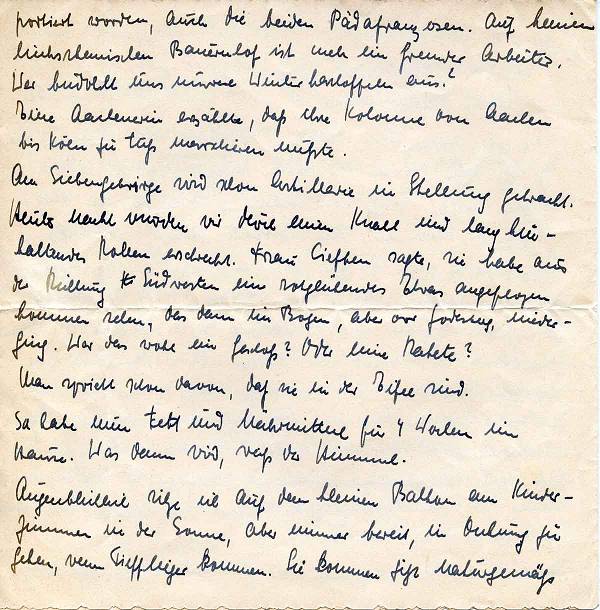 portiert worden, auch die beiden Pädafranzosen. Auf keinem
linksrheinischen Bauernhof ist mehr ein fremder Arbeiter.
Wer buddelt uns unsere Winterkartoffeln aus?
Eine Aachenerin erzählte, daß ihre Kolonne von Aachen
bis Köln zu Fuß marschieren mußte.
Am Siebengebirge wird schon Artillerie in Stellung gebracht.
Heute nacht wurden wir durch einen Knall und lang hin-
hallendes Rollen erschreckt. Frau sagte, sie habe aus
der Richtung Südwesten ein rotglühendes Etwas angeflogen
kommen sehen, das dann im Bogen, aber vor Godesberg, nieder-
ging. War das wohl ein Geschoß? Oder eine Rakete?
Man spricht schon davon, daß sie in der Eifel sind.
So habe nun Fett und Nährmittel für 4 Wochen im
Hause. Was dann wird, weiß der Himmel.
Augenblicklich sitze ich auf dem kleinen Balkon am Kinder-
zimmer in der Sonne, aber immer bereit, in Deckung zu
gehen, wenn Tiefflieger kommen. Sie kommen jetzt naturgemäß